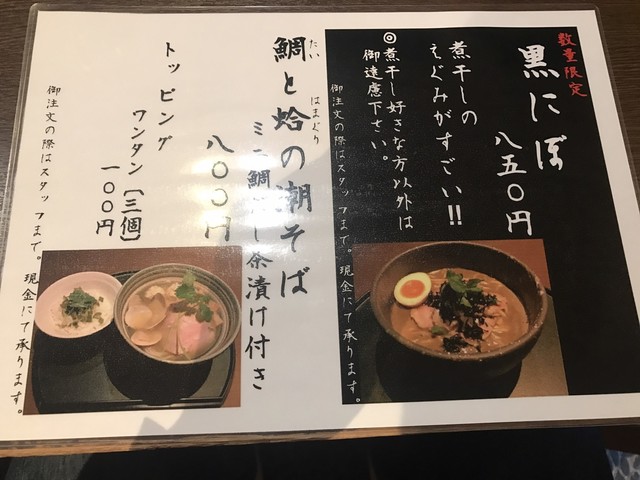 数量限定
黒にぼ
八五〇円
煮干しの
えぐみがすごい!!
◎煮干し好きな方以外は
御遠慮下さい。
御注文の際はスタッフまで。現金にて承ります。
鯛と蛤の潮そば
たい
はまぐり
ミニ鯛だし茶漬け付き
八〇〇円
トッピング
ワンタン〔三個〕
一〇〇円
御注文の際はスタッフまで。現金にて承ります。